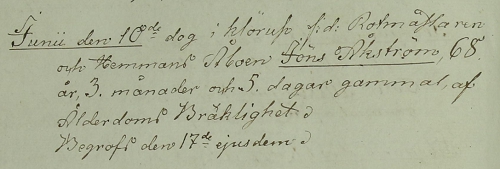 Junii den 10de dog i Klörup f: d: Rotmästaren
och Hemmans Åboen Jöns Åkström, 68.
år, 3. månader och 5. dagar gammal, af
Ålderdoms Bräklighet.
Begrofs den 17de ejusdem.